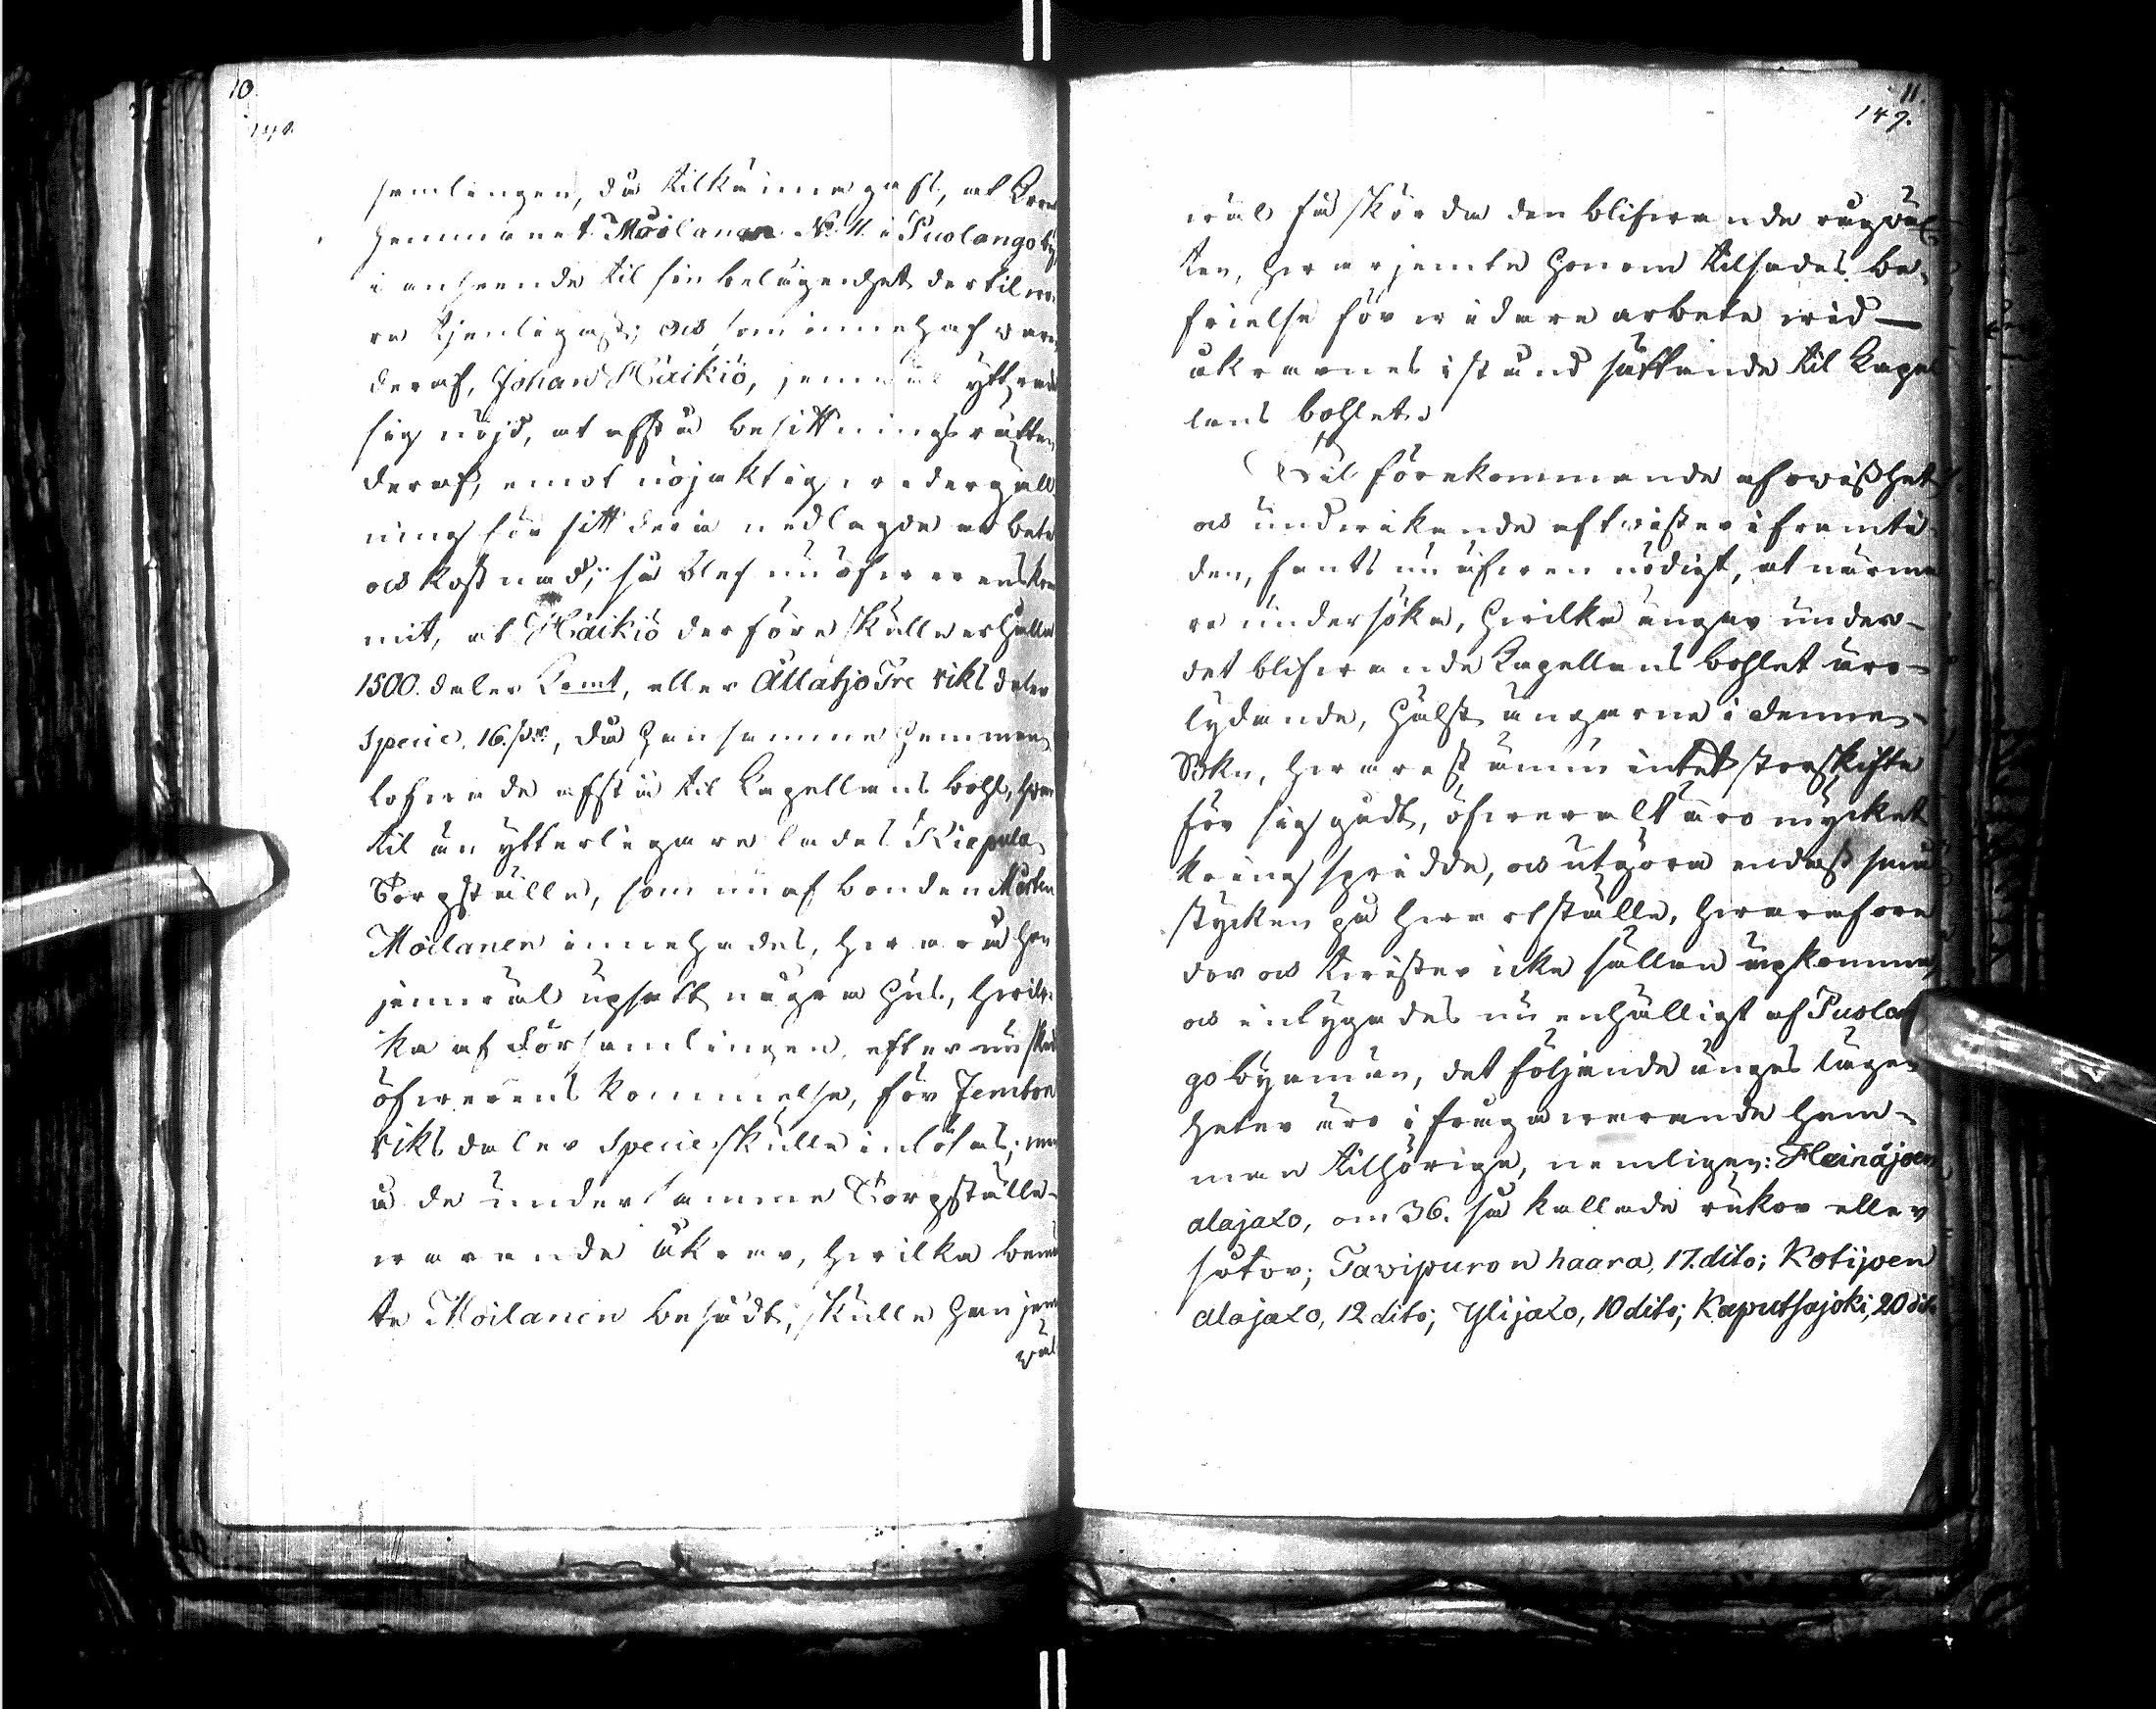 10.
samlingen, då tilkännagafs, at Crono
hemmanet Moilanen N:o 11. i Puolango by
i anseende til sin belägenhet dertil wo-
re tjenligast; och som innehafware
deraf, Johan Häikiö, jemwäl yttrade
sig nöjd, at afstå besittningsrätten
deraf, emot nöjaktig wedergäll
ning för sitt derå nedlagde arbete
och kostnad; så blef nu öfwerenskom
mit, at Häikiö derföre skulle erhålla
1500. daler Kpmt, eller Åttatjo Tre riksdaler
Specie, 16. s., då han samma hemman
lofwade afstå til Capellans bohl, hwar
til än ytterligare lades Kiepula
Torpställe, som nu af bonden Mårten
Moilanen innehades, hwarå han
jemwäl upsatt några hus, hwil-
ka af Församlingen, efter nu skedd
öfwerenskommelse, för Femton
riksdaler Specie skulle inlösas; men
å de under samma Torpställe
warande åkrar, hwilka bemäl
te Moilanen besådt, skulle han jem
wäl
11.
147.
wäl få skörda den blifwande rugwäx
ten, hwarjemte honom tilsades be-
frielse för widare arbete wid
åkrarnes iståndsättande til Capel
lans bohlet.
Til förekommande af owisshet
och undwikande af twister i framti
den, fants nu äfwen nödigt, at närma
re undersöka, hwilka ängar under
det blifwande Capellans bohlet äro
lydande, hälst ängarne i denna
Sokn, hwarest ännu intet storskifte
för sig gådt, öfweralt äro mycket
kringspridde, och utgöra endast små
stycken på hwart ställe, hwarföre
och twister icke sällan upkomma,
och intygades nu enhälligt af Puolan
go byamän, det följande ängeslägen
heter äro i fråga warande hem-
man tilhörige, nemligen: Heinäjoen
alajaxo, om 36. så kallade rukor eller
såtor; Tavipuron haara, 17. dito; Kotijoen
alajaxo, 12 dito; Ylijaxo, 10 dito; Kaputtajoki, 20 dito